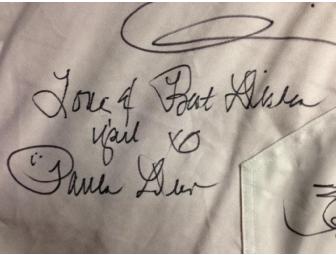 Love & Best Dishes
y'all XO
Paula Deen